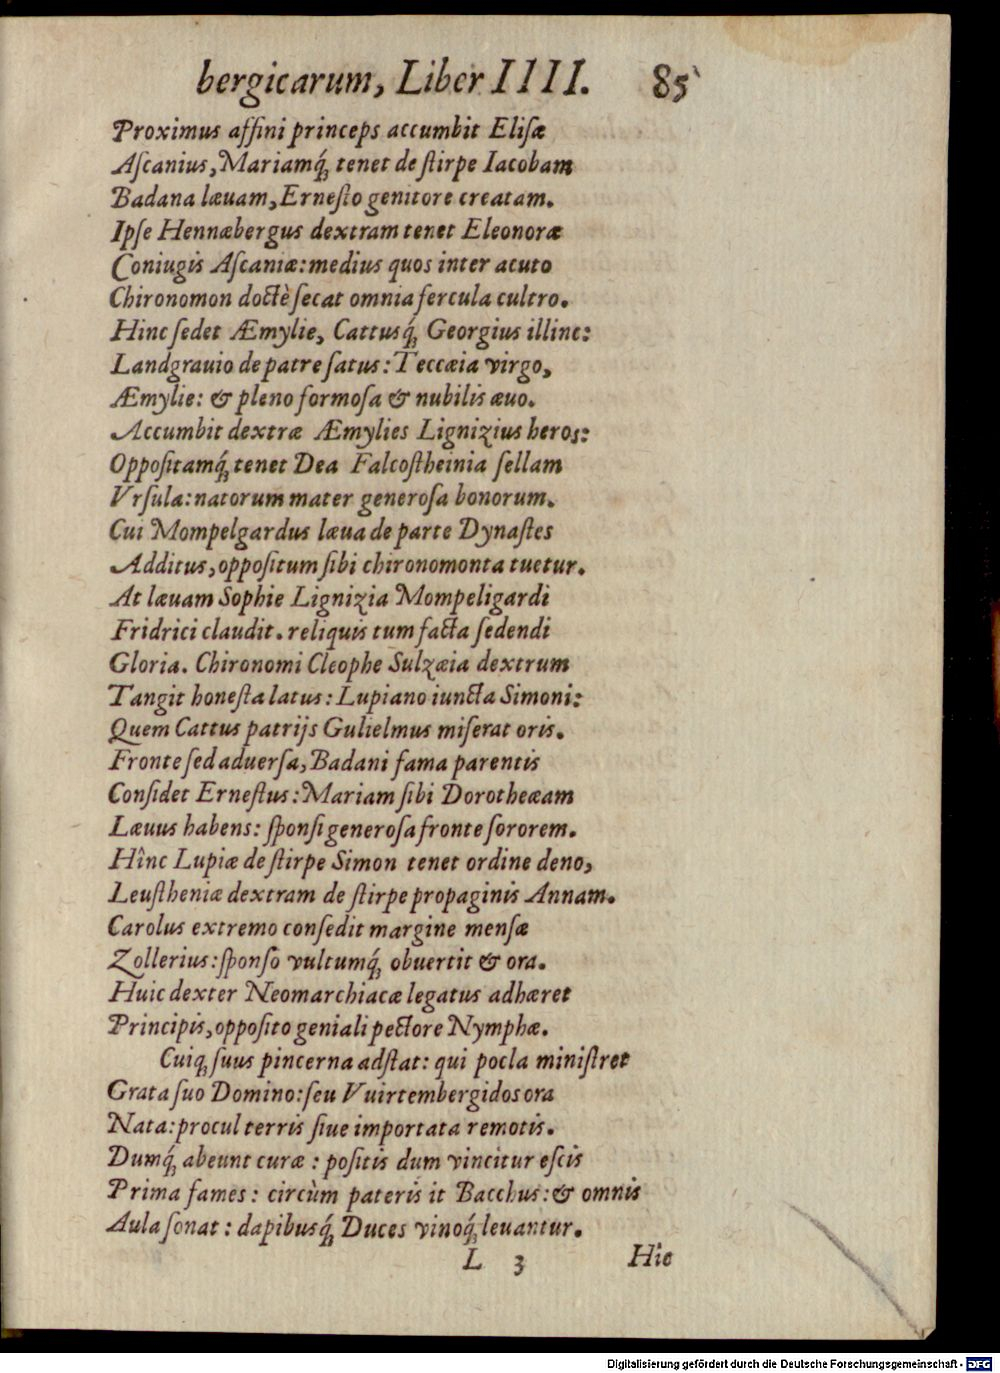 bergicarum, Liber IIII. 85
Proximus affini princeps accumbit Elisæ
Ascanius, Mariamq́; tenet de stirpe Iacobam
Badana læuam, Ernesto genitore creatam.
Ipse Hennæbergus dextram tenet Eleonoræ
Coniugis Ascaniæ: medius quos inter acuto
Chironomon doctè secat omnia fercula cultro.
Hinc sedet Æmylie, Cattusq́; Georgius illinc:
Landgrauio de patre satus: Teccæia virgo,
Æmylie: & pleno formosa & nubilis æuo.
Accumbit dextræ Æmylies Lignizius heros:
Oppositamq́; tenet Dea Falcostheinia sellam
Vrsula: natorum mater generosa bonorum.
Cui Mompelgardus læua de parte Dynastes
Additus, oppositum sibi chironomonta tuetur.
At læuam Sophie Lignizia Mompeligardi
Fridrici claudit. reliquis tum facta sedendi
Gloria. Chironomi Cleophe Sulzæia dextrum
Tangit honesta latus: Lupiano iuncta Simoni:
Quem Cattus patrijs Gulielmus miserat oris.
Fronte sed aduersa, Badani fama parentis
Considet Ernestus: Mariam sibi Dorotheæam
Læuus habens: sponsi generosa fronte sororem.
Hînc Lupiæ de stirpe Simon tenet ordine deno,
Leustheniæ dextram de stirpe propaginis Annam.
Carolus extremo consedit margine mensæ
Zollerius: sponso vultumq́; obuertit & ora.
Huic dexter Neomarchiacæ legatus adhæret
Principis, opposito geniali pectore Nymphæ.
Cuiq; suus pincerna adstat: qui pocla ministret
Grata suo Domino: seu Vuirtembergidos ora
Nata: procul terris siue importata remotis.
Dumq́; abeunt curæ: positis dum vincitur escis
Prima fames: circùm pateris it Bacchus: & omnis
Aula sonat: dapibusq́; Duces vinoq́; leuantur.
L 3 Hîc
Digitalisierung gefördert durch die Deutsche Forschungsgemeinschaft - DFG